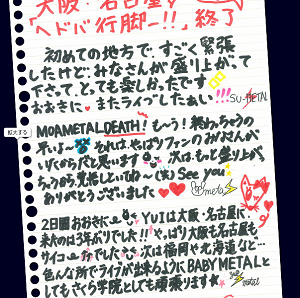 大阪・名古屋
「ヘドバン行脚-!!」終了
初めての地方で、すごく緊張
したけど、みなさんが盛り上がって
下さって、とっても楽しかったです
おおきに。またライブしたぁい!!! SU-METAL
拡大する
MOAMETAL DEATH! もーう! 終わっちゃうの
早いよ~ それは、やっぱりファンのみなさんが
いたからだと思います 次は、もっと盛り上が
っちゃうから覚悟しといてね~(*) See you
ありがとうございました moametal
2日間おおきにー YUIは大阪・名古屋に
来たのは3年ぶりでした!! やっぱり大阪も名古屋も
サイコーでした 次は福岡や北海道など…
色んな所でライブが出来るようにBABYMETALと
してもさくら学院としても頑張ります